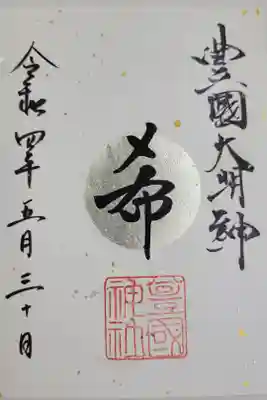 豊國大明神
希
豊國
神社
令和四年五月三十日